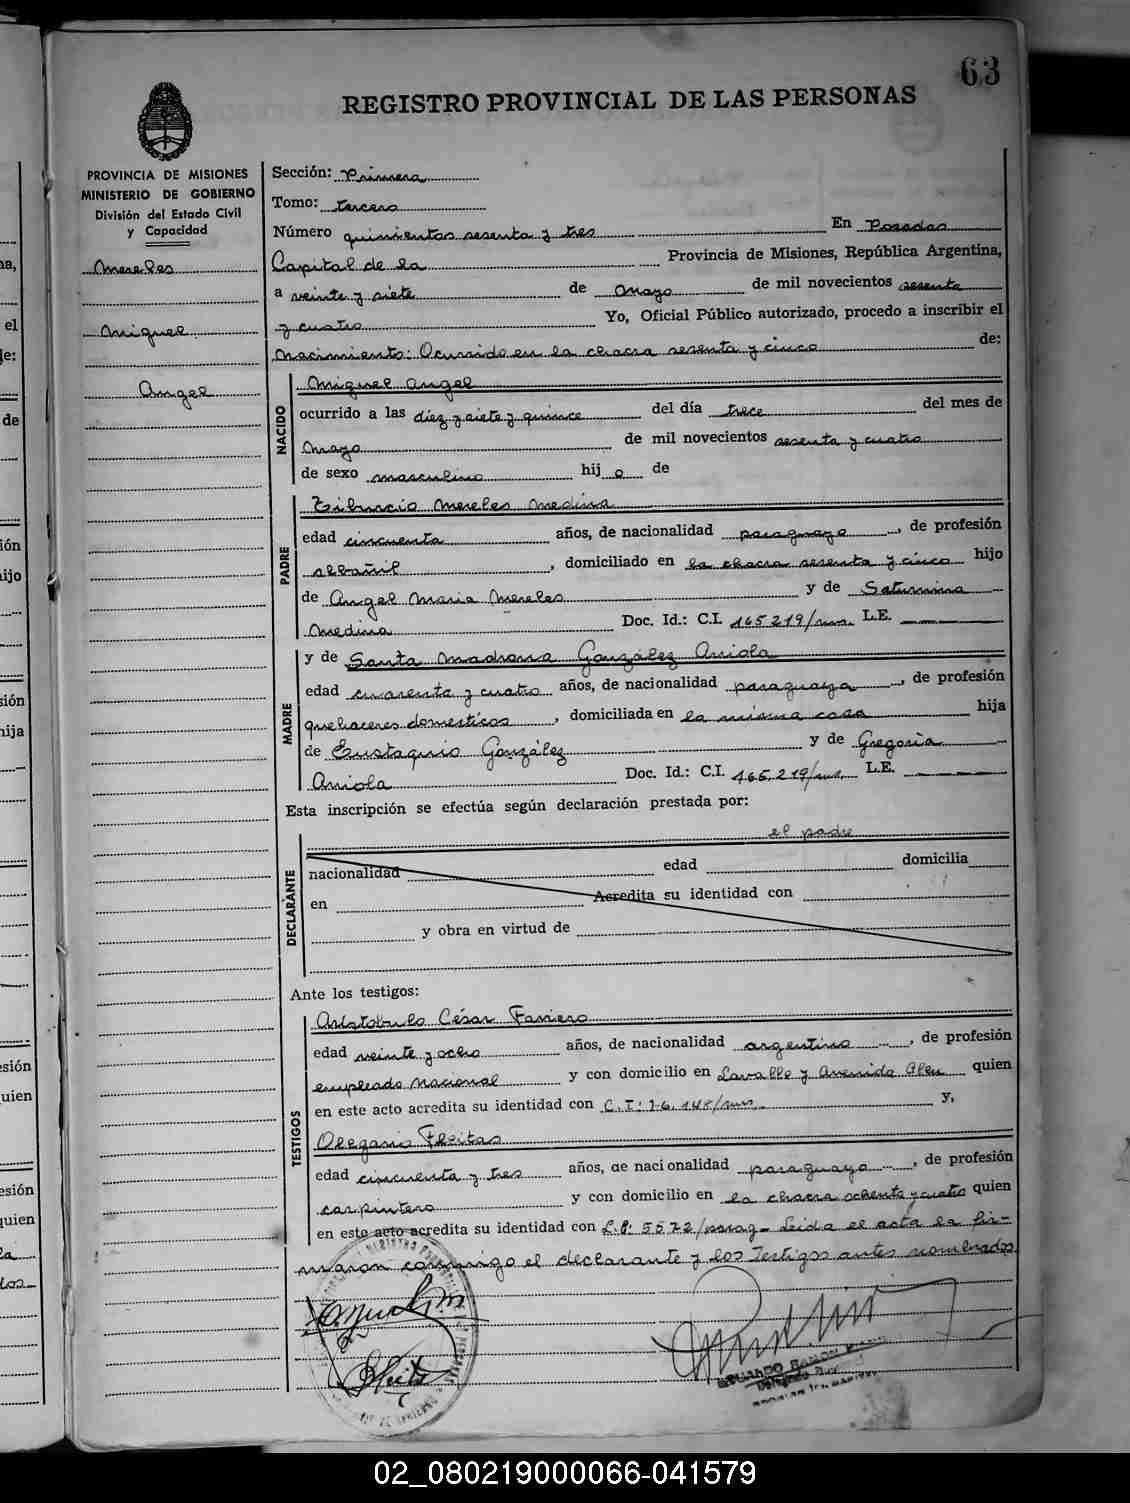 63
REGISTRO PROVINCIAL DE LAS PERSONAS
PROVINCIA DE MISIONES
MINISTERIO DE GOBIERNO
División del Estado Civil
y Capacidad
Mereles
Miguel
Angel
Sección: Primera
Tomo: tercero
Número quinientos sesenta y tres En Posadas
Capital de la Provincia de Misiones, República Argentina,
a veinte y siete de Mayo de mil novecientos sesenta
y cuatro Yo, Oficial Público autorizado, procedo a inscribir el
nacimiento: Ocurrido en la chacra sesenta y cinco de:
NACIDO
Miguel Angel
ocurrido a las diez y siete y quince del día trece del mes de
Mayo de mil novecientos sesenta y cuatro
de sexo masculino hijo de
PADRE
Tiburcio Mereles Medina
edad cincuenta años, de nacionalidad paraguayo, de profesión
albañil, domiciliado en la chacra sesenta y cinco hijo
de Angel Maria Mereles y de Saturnina
Medina Doc. Id.: C.I. 165219/mns. L.E.
MADRE
y de Santa Madrona González Aniola
edad cuarenta y cuatro años, de nacionalidad paraguaya, de profesión
quehaceres domesticos, domiciliada en la misma casa hija
de Eustaquio González y de Gregoria
Aniola Doc. Id.: C.I. 165.219/mns. L.E.
Esta inscripción se efectúa según declaración prestada por:
el padre
DECLARANTE
nacionalidad edad domicilia
en Acredita su identidad con
y obra en virtud de
Ante los testigos:
TESTIGOS
Aristobulo César Faviero
edad veinte y ocho años, de nacionalidad argentino, de profesión
empleado nacional y con domicilio en Lavalle y Avenida Alem quien
en este acto acredita su identidad con C.I: 76.148/mns. y,
Olegario Fleitas
edad cincuenta y tres años, de nacionalidad paraguayo, de profesión
carpintero y con domicilio en la chacra ochenta y cuatro quien
en este acto acredita su identidad con L.P: 5572/parag- Leida el acta la fir-
maron conmigo el declarante y los Testigos antes nombrados
02_080219000066-041579